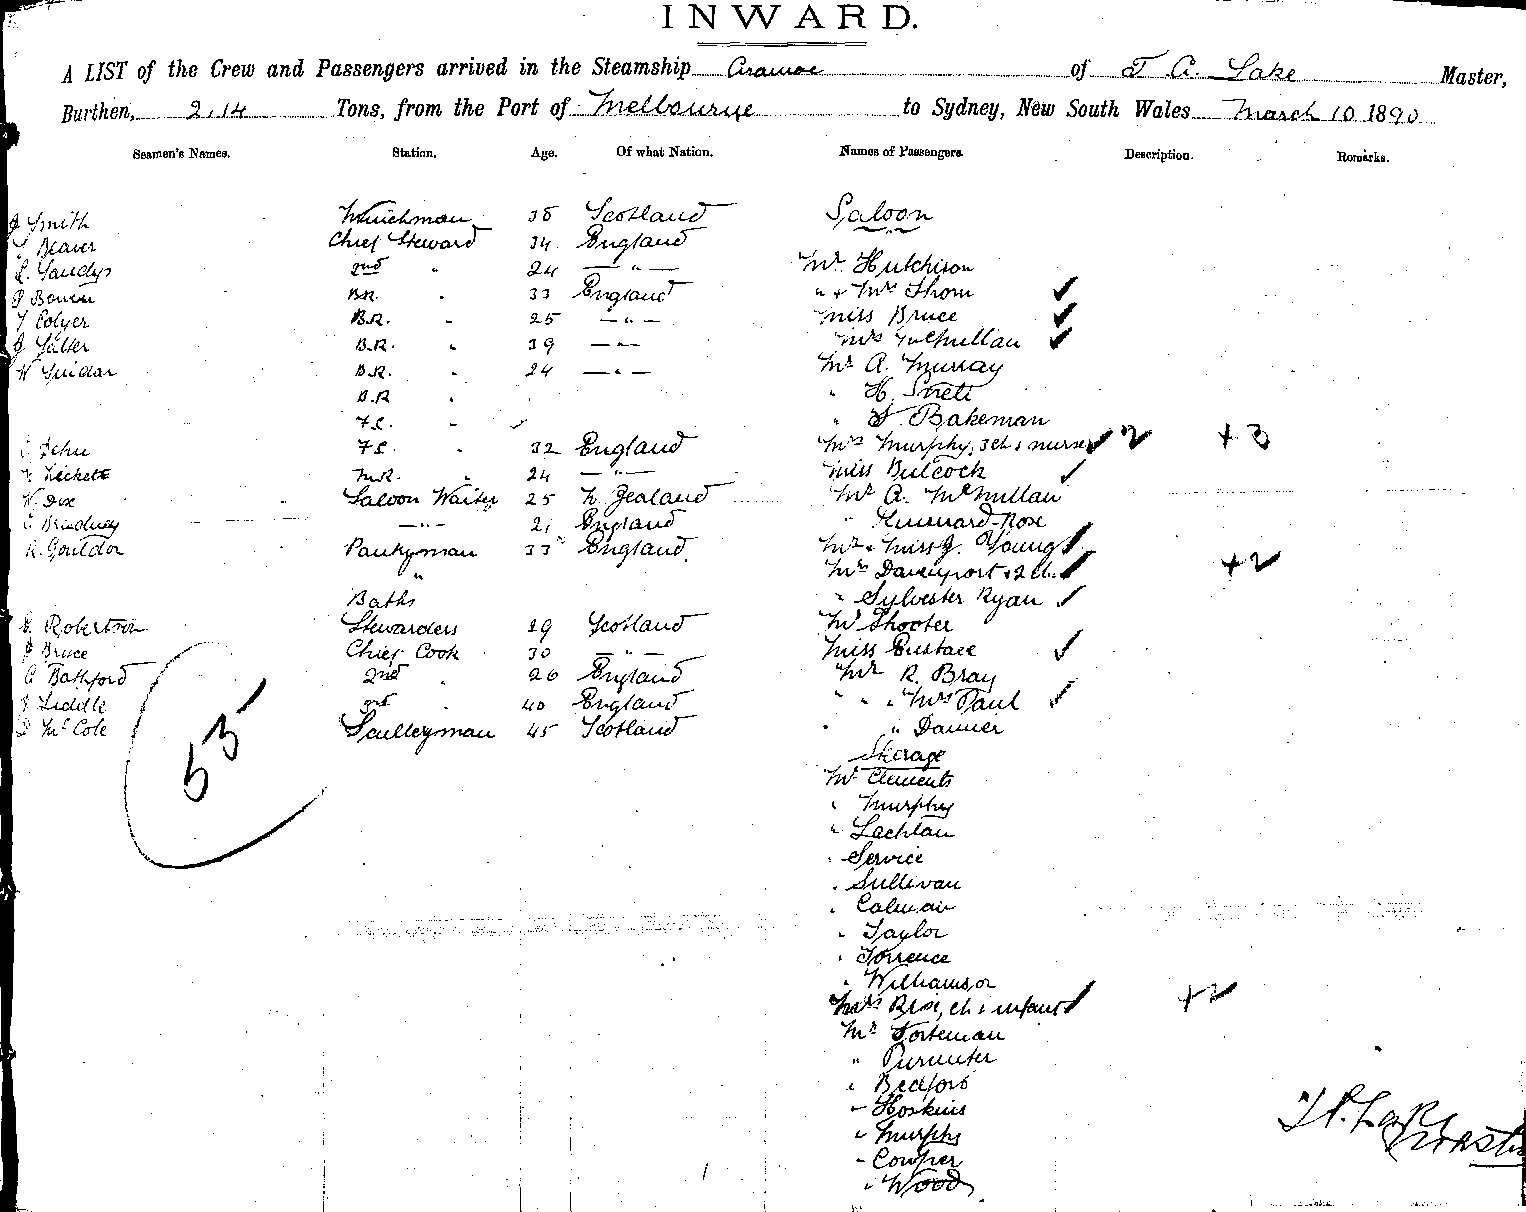 INWARD.
A LIST of the Crew and Passengers arrived in the Steamship Ararwoe of T A. Lake Master,
Burthen, 2,14 Tons, from the Port of Melbourne to Sydney, New South Wales March 10 1890
Seamen's Names. Station. Age. Of what Nation. Names of Passengers. Description. Remarks.
J Smith Winchman 38 Scotland Saloon
Beaver Chief Steward 34 England
Sandys 2nd " 24 — " — Mr Hutchison
Bowen B.R. " 33 England " & Mrs Thom
Y Colyer B.R. " 25 — " — Miss Bruce
J Salter B.R. " 39 — " — Mrs McMullan
W B.R. " 24 — " — Mr A. Murray
B.R " " H.
F.C. " " Bakeman
F.C. " 32 England Mrs Murphy, 3 ch & nurse 2 +3
M.R. " 24 — " — Miss Bulcock
W. Dix Saloon Waiter 25 N. Zealand Mr A. McMullan
— " — 21 England " Rose
R. Gouldor Pantryman 33 England Mr & Miss J. Young
" Mrs Davenport & 2 ch. +2
Baths " Sylvester Ryan
Robertson Stewardess 29 Scotland Mr Shooter
J Bruce Chief Cook 30 — " — Miss Eustace
C Bathford 2nd " 26 England Mr R. Bray
J Liddle 3rd " 40 England " " Mrs Paul
D McCole Sculleryman 45 Scotland " " Danner
55
Sterage
Mr Clements
" Murphy
" Lachlan
" Service
" Sullivan
" Calman
" Taylor
" Torrence
" Williamson
Mrs Rose, ch & infant +2
Mr
"
" Bedford
" Hoskins
" Murphy
" Cowper
" Wood
Lake
Master